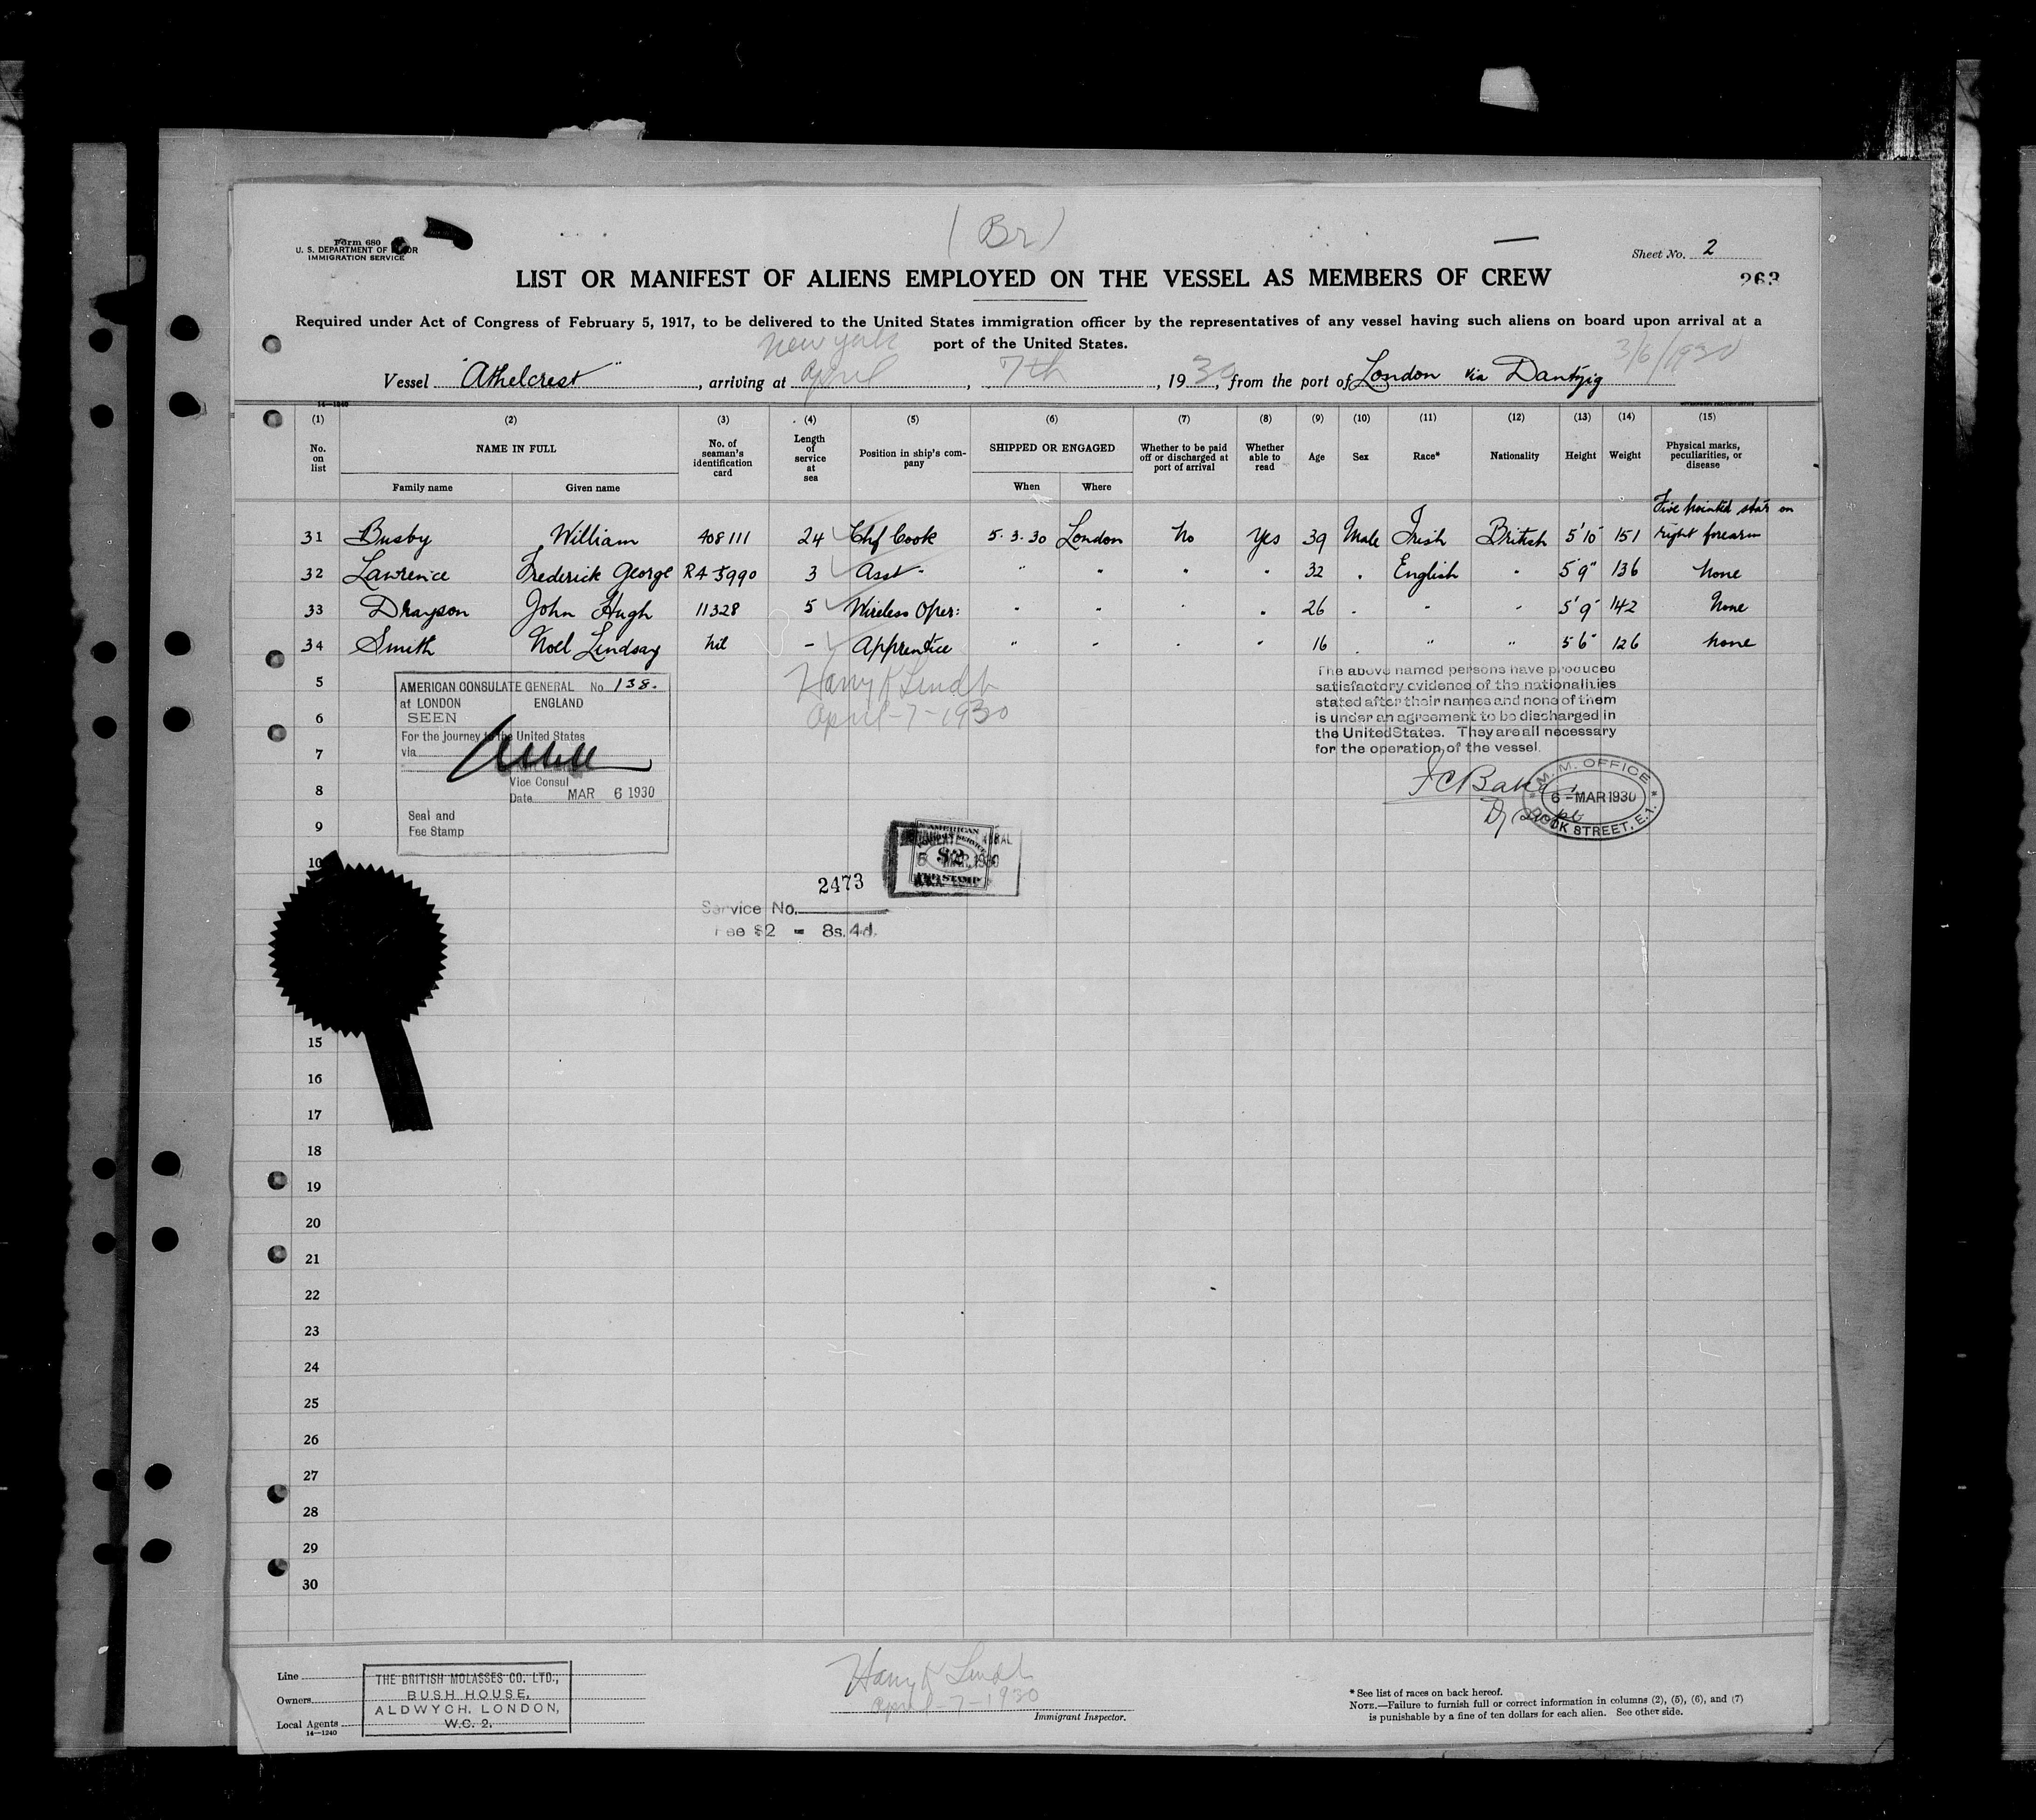 (Br)
Form 680
U. S. DEPARTMENT OF LABOR
IMMIGRATION SERVICE
Sheet No. 2
LIST OR MANIFEST OF ALIENS EMPLOYED ON THE VESSEL AS MEMBERS OF CREW
263
Required under Act of Congress of February 5, 1917, to be delivered to the United States immigration officer by the representatives of any vessel having such aliens on board upon arrival at a
port of the United States.
New York
3/6/1930
Vessel "Athelcrest", arriving at April, 7th, 1930, from the port of London via Dantzig
14—1240
(1) (2) (3) (4) (5) (6) (7) (8) (9) (10) (11) (12) (13) (14) (15)
No. on list NAME IN FULL No. of seaman's identification card Length of service at sea Position in ship's company SHIPPED OR ENGAGED Whether to be paid off or discharged at port of arrival Whether able to read Age Sex Race* Nationality Height Weight Physical marks, peculiarities, or disease
Family name Given name When Where
Five pointed star on
31 Busby William 408111 24 Chf Cook 5.3.30 London No Yes 39 Male Irish British 5'10" 151 right forearm
32 Lawrence Frederick George RA 5990 3 Asst " " " " " 32 " English " 5'9" 136 None
33 Drayson John Hugh 11328 5 Wireless Oper: " " " " 26 " " " 5'9" 142 None
34 Smith Noel Lindsay Nil – Apprentice " " " " 16 " " " 5'6" 126 None
5
6
7
8
9
10
15
16
17
18
19
20
21
22
23
24
25
26
27
28
29
30
AMERICAN CONSULATE GENERAL No 138.
at LONDON ENGLAND
SEEN
For the journey to the United States
via
Vice Consul
Date MAR 6 1930
Seal and
Fee Stamp
Harry K Lindh
April-7-1930
The above named persons have produced
satisfactory evidence of the nationalities
stated after their names and none of them
is under an agreement to be discharged in
the United States. They are all necessary
for the operation of the vessel.
M. M. OFFICE
6 - MAR 1930
DOCK STREET, E.1.
AMERICAN
$2
FEE STAMP
2473
Service No.
Fee $2 = 8s. 4d.
Line
Owners
Local Agents
14—1240
THE BRITISH MOLASSES CO. LTD.,
BUSH HOUSE,
ALDWYCH, LONDON,
W.C. 2.
Harry K Lindh
April-7-1930
Immigrant Inspector.
* See list of races on back hereof.
NOTE.—Failure to furnish full or correct information in columns (2), (5), (6), and (7)
is punishable by a fine of ten dollars for each alien. See other side.